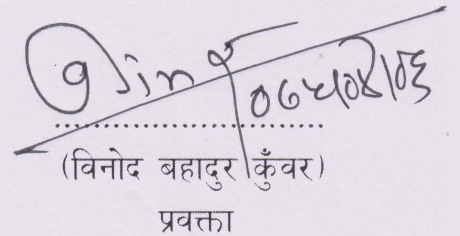 ०७५।०४।०६
(विनोद बहादुर कुँवर)
प्रवक्ता